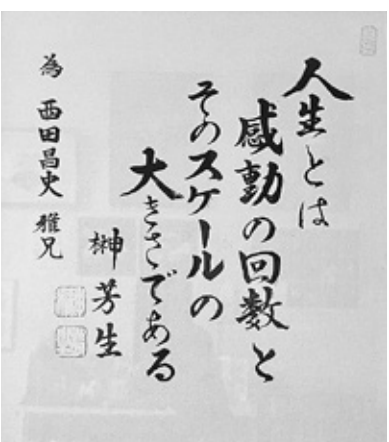 人生とは
感動の回数と
そのスケールの
大きさである
榊芳生
為 西田昌史 雅兄